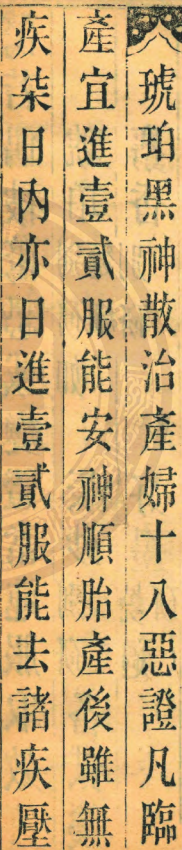 琥珀黑神散治產婦十八惡證凡臨
產宜進壹貳服能安神順胎產後雖無
疾柒日內亦日進壹貳服能去諸疾壓